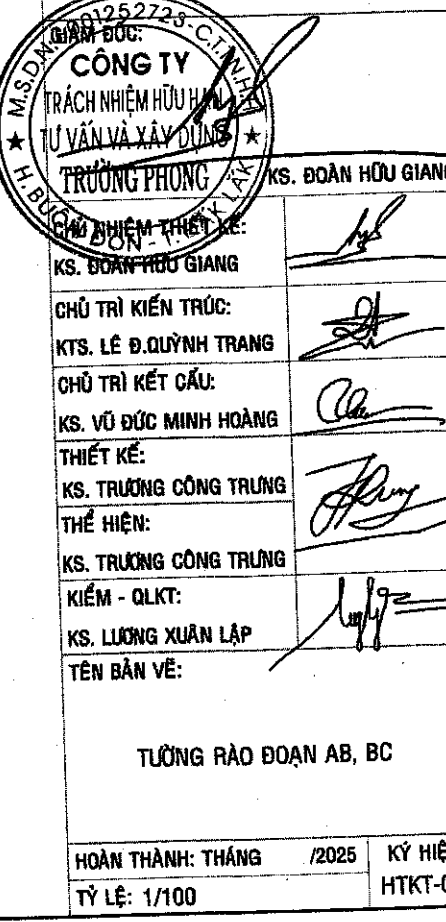 GIÁM ĐỐC:
M.S.D.N: 001252723-C.T.T.N.H.H
CÔNG TY
TRÁCH NHIỆM HỮU HẠN
TƯ VẤN VÀ XÂY DỰNG
TRƯỜNG PHONG
H. BUÔN ĐÔN - T. ĐẮK LẮK
KS. ĐOÀN HỮU GIANG
CHỦ NHIỆM THIẾT KẾ:
KS. ĐOÀN HỮU GIANG
CHỦ TRÌ KIẾN TRÚC:
KTS. LÊ Đ.QUỲNH TRANG
CHỦ TRÌ KẾT CẤU:
KS. VŨ ĐỨC MINH HOÀNG
THIẾT KẾ:
KS. TRƯƠNG CÔNG TRƯNG
THỂ HIỆN:
KS. TRƯƠNG CÔNG TRƯNG
KIỂM - QLKT:
KS. LƯƠNG XUÂN LẬP
TÊN BẢN VẼ:
TƯỜNG RÀO ĐOẠN AB, BC
HOÀN THÀNH: THÁNG /2025
KÝ HIỆ
TỶ LỆ: 1/100
HTKT-0